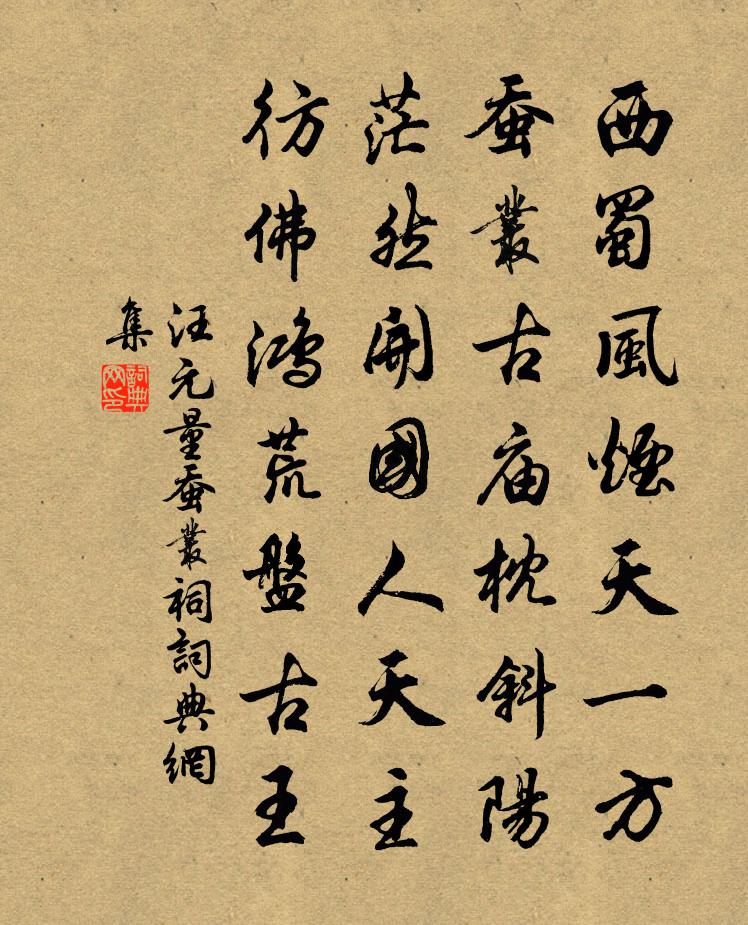 西蜀風煙天一方
蚕叢古庙枕斜陽
茫然開國人天主
彷佛鴻荒盤古王
汪元量蚕叢祠詞典網
集
詞典
网印